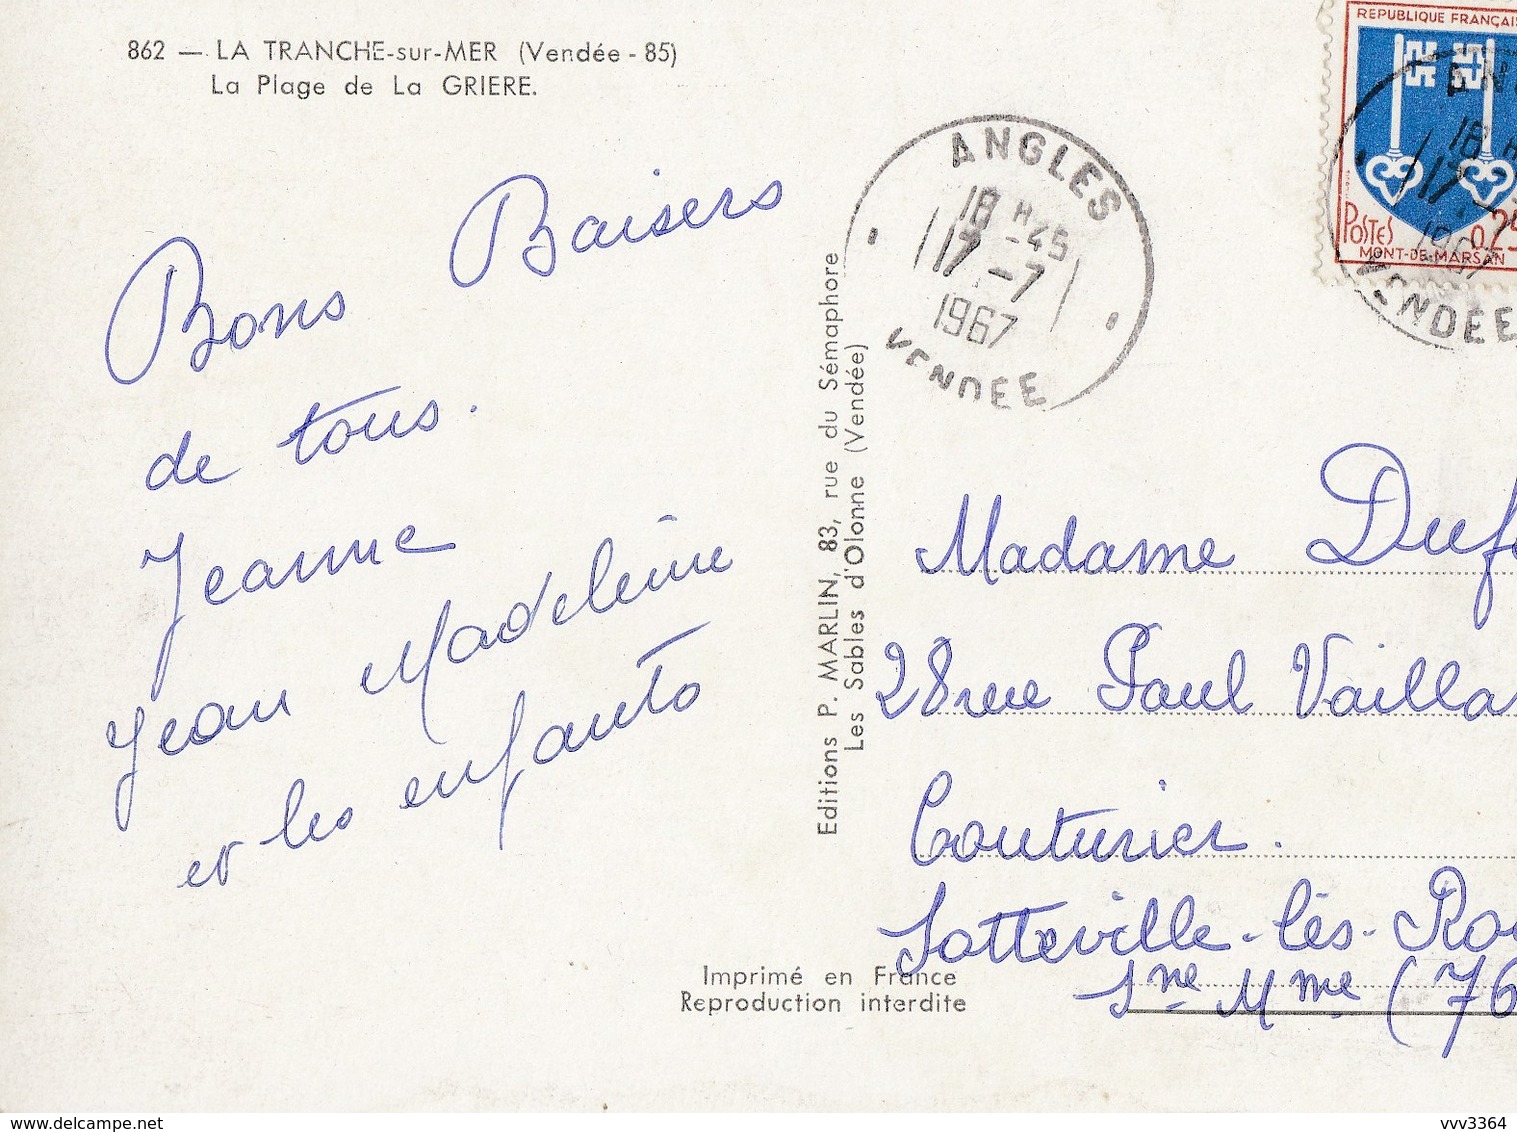 862 — LA TRANCHE-sur-MER (Vendée - 85)
La Plage de La GRIERE.
Bons Baisers
de tous.
Jeanne
Jean Madeleine
et les enfants
Editions P. MARLIN, 83, rue du Sémaphore
Les Sables d'Olonne (Vendée)
Imprimé en France
Reproduction interdite
ANGLES
18 H -45
17 - 7
1967
VENDEE
REPUBLIQUE FRANÇAIS
POSTES 0,25
MONT-DE-MARSAN
ANG
18 H
17 - 7
1967
VENDEE
Madame Duf
28 rue Paul Vailla
Couturier.
Sotteville-lès-Ro
Sne Mme (76
delcampe.net
vvv3364